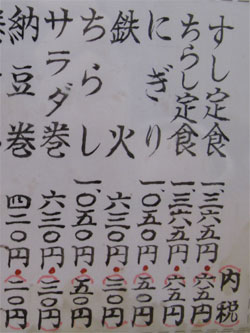 内税
すし定食 一、三六五円(六五円)
ちらし定食 一、三六五円(六五円)
にぎり 一、〇五〇円(五〇円)
鉄火 六三〇円(三〇円)
ちらし 一、〇五〇円(五〇円)
サラダ巻 六三〇円(三〇円)
納豆巻 四二〇円(二〇円)